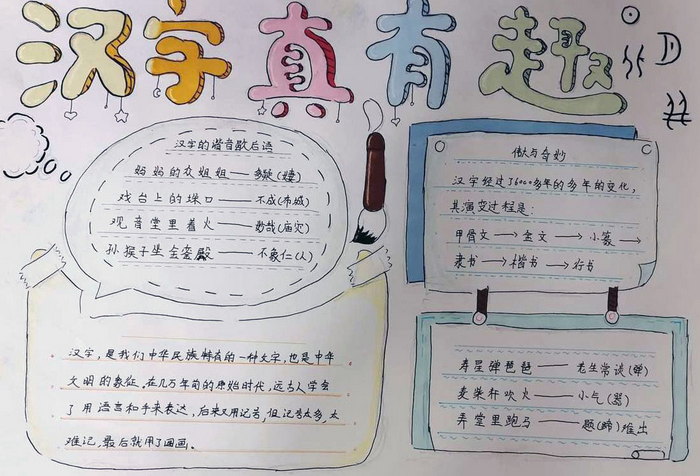 汉字真有趣
汉字的谐音歇后语
妈妈的众姐姐——多疑(姨)
戏台上的垛口——不成(布城)
观音堂里着火——妙哉(庙灾)
孙猴子坐金銮殿——不象仁(人)
汉字,是我们中华民族特有的一种文字,也是中华
文明的象征,在几万年前的原始时代,远古人学会
了用语言和手来表达,后来又用记号,但记号太多,太
难记,最后就用了画画。
微与奇妙
汉字经过了6000多年的多年的变化,
其演变过程是:
甲骨文→金文→小篆→
隶书→楷书→行书
寿星弹琵琶——老生常谈(弹)
麦柴杆吹火——小气(器)
弄堂里跑马——题(蹄)难出